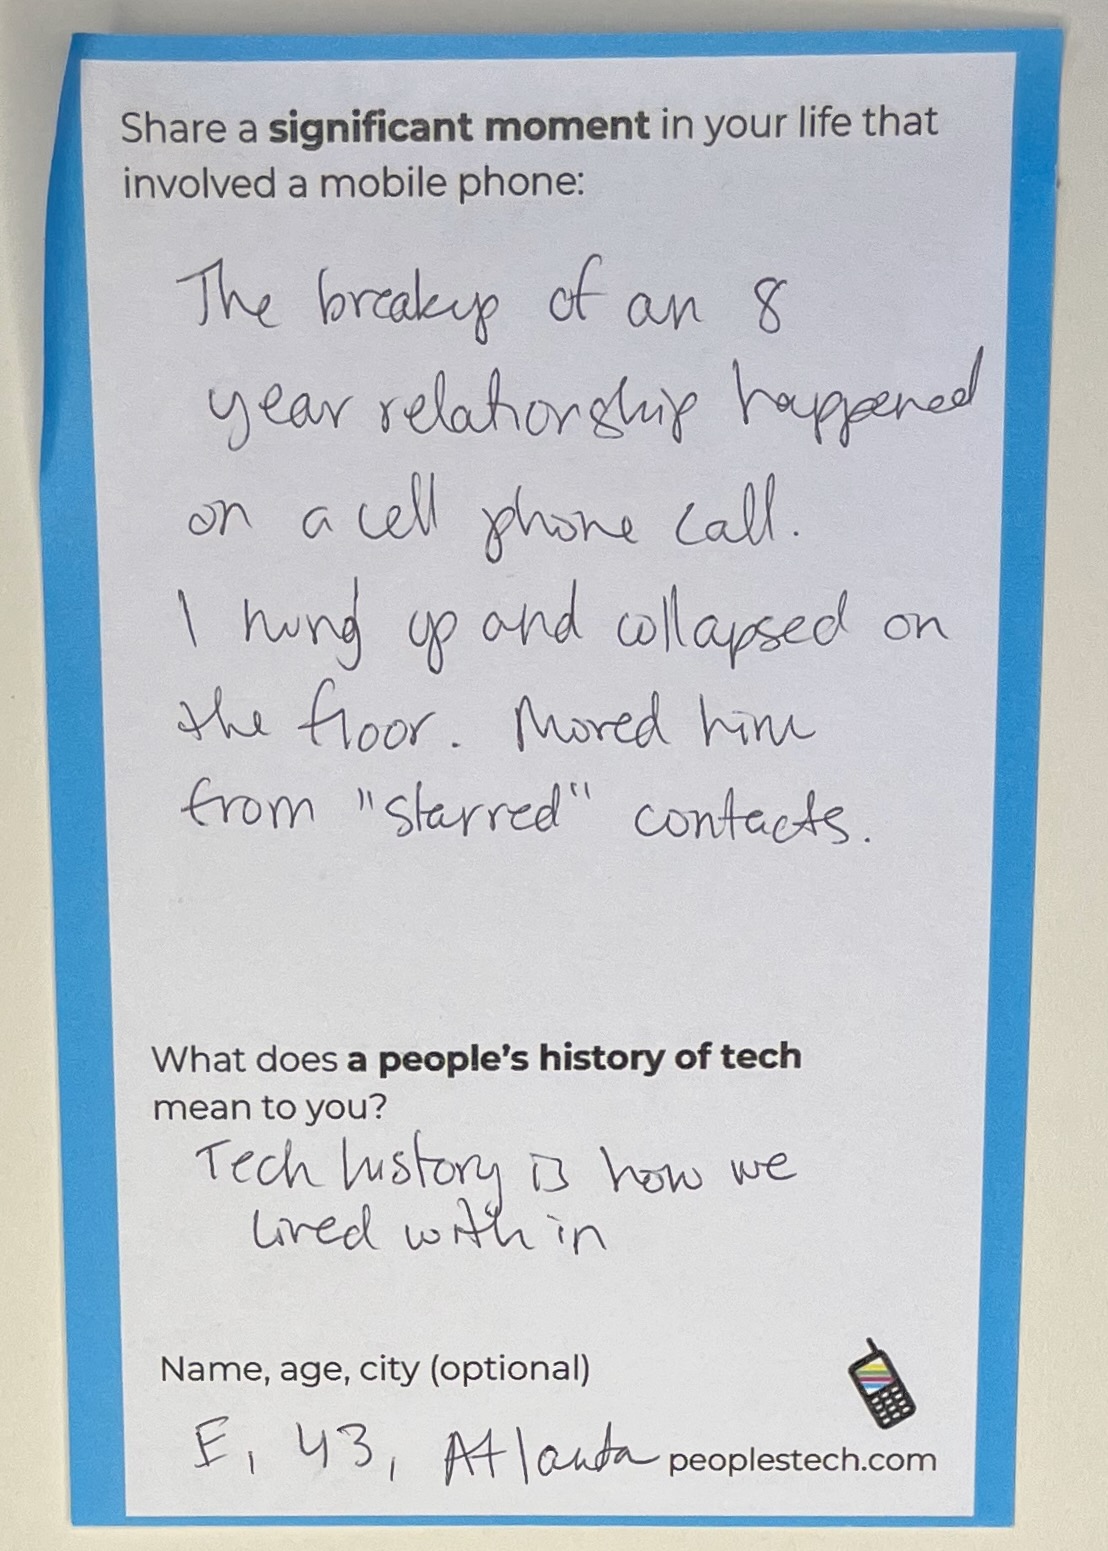 Share a significant moment in your life that
involved a mobile phone:
The breakup of an 8
year relationship happened
on a cell phone call.
I hung up and collapsed on
the floor. Moved him
from "starred" contacts.
What does a people's history of tech
mean to you?
Tech history is how we
lived with in
Name, age, city (optional)
E, 43, Atlanta
peoplestech.com